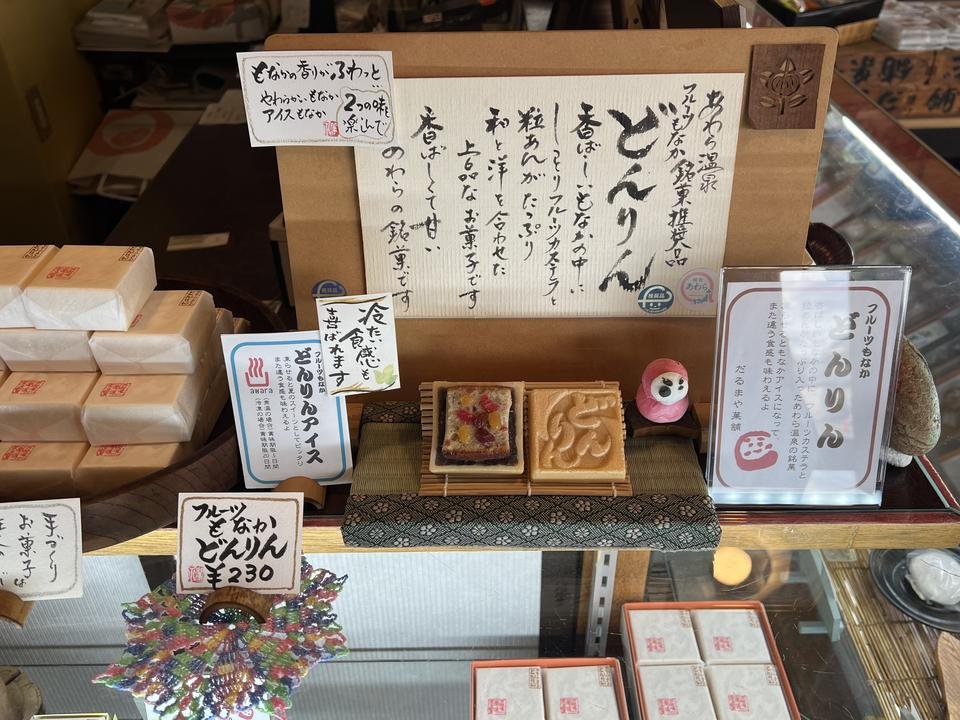 もなかの香りがふわっと
やわらかいもなか
アイスもなか
2つの味を
楽しんで
あわら温泉
フルーツもなか 銘菓推奨品
どんりん
香ばしいもなかの中に
しっとりフルーツカステラと
粒あんがたっぷり
和と洋を合わせた
上品なお菓子です
香ばしくて甘い
あわらの銘菓です
冷たい
食感も
喜ばれます
フルーツもなか
どんりんアイス
凍らせると夏のスイーツとしてピッタリ
また違う食感も味わえるよ
awara
フルーツもなか
どんりん
また違う食感も味わえるよ
だるまや菓舗
手づくり
お菓子は
フルーツ
もなか
どんりん
¥230